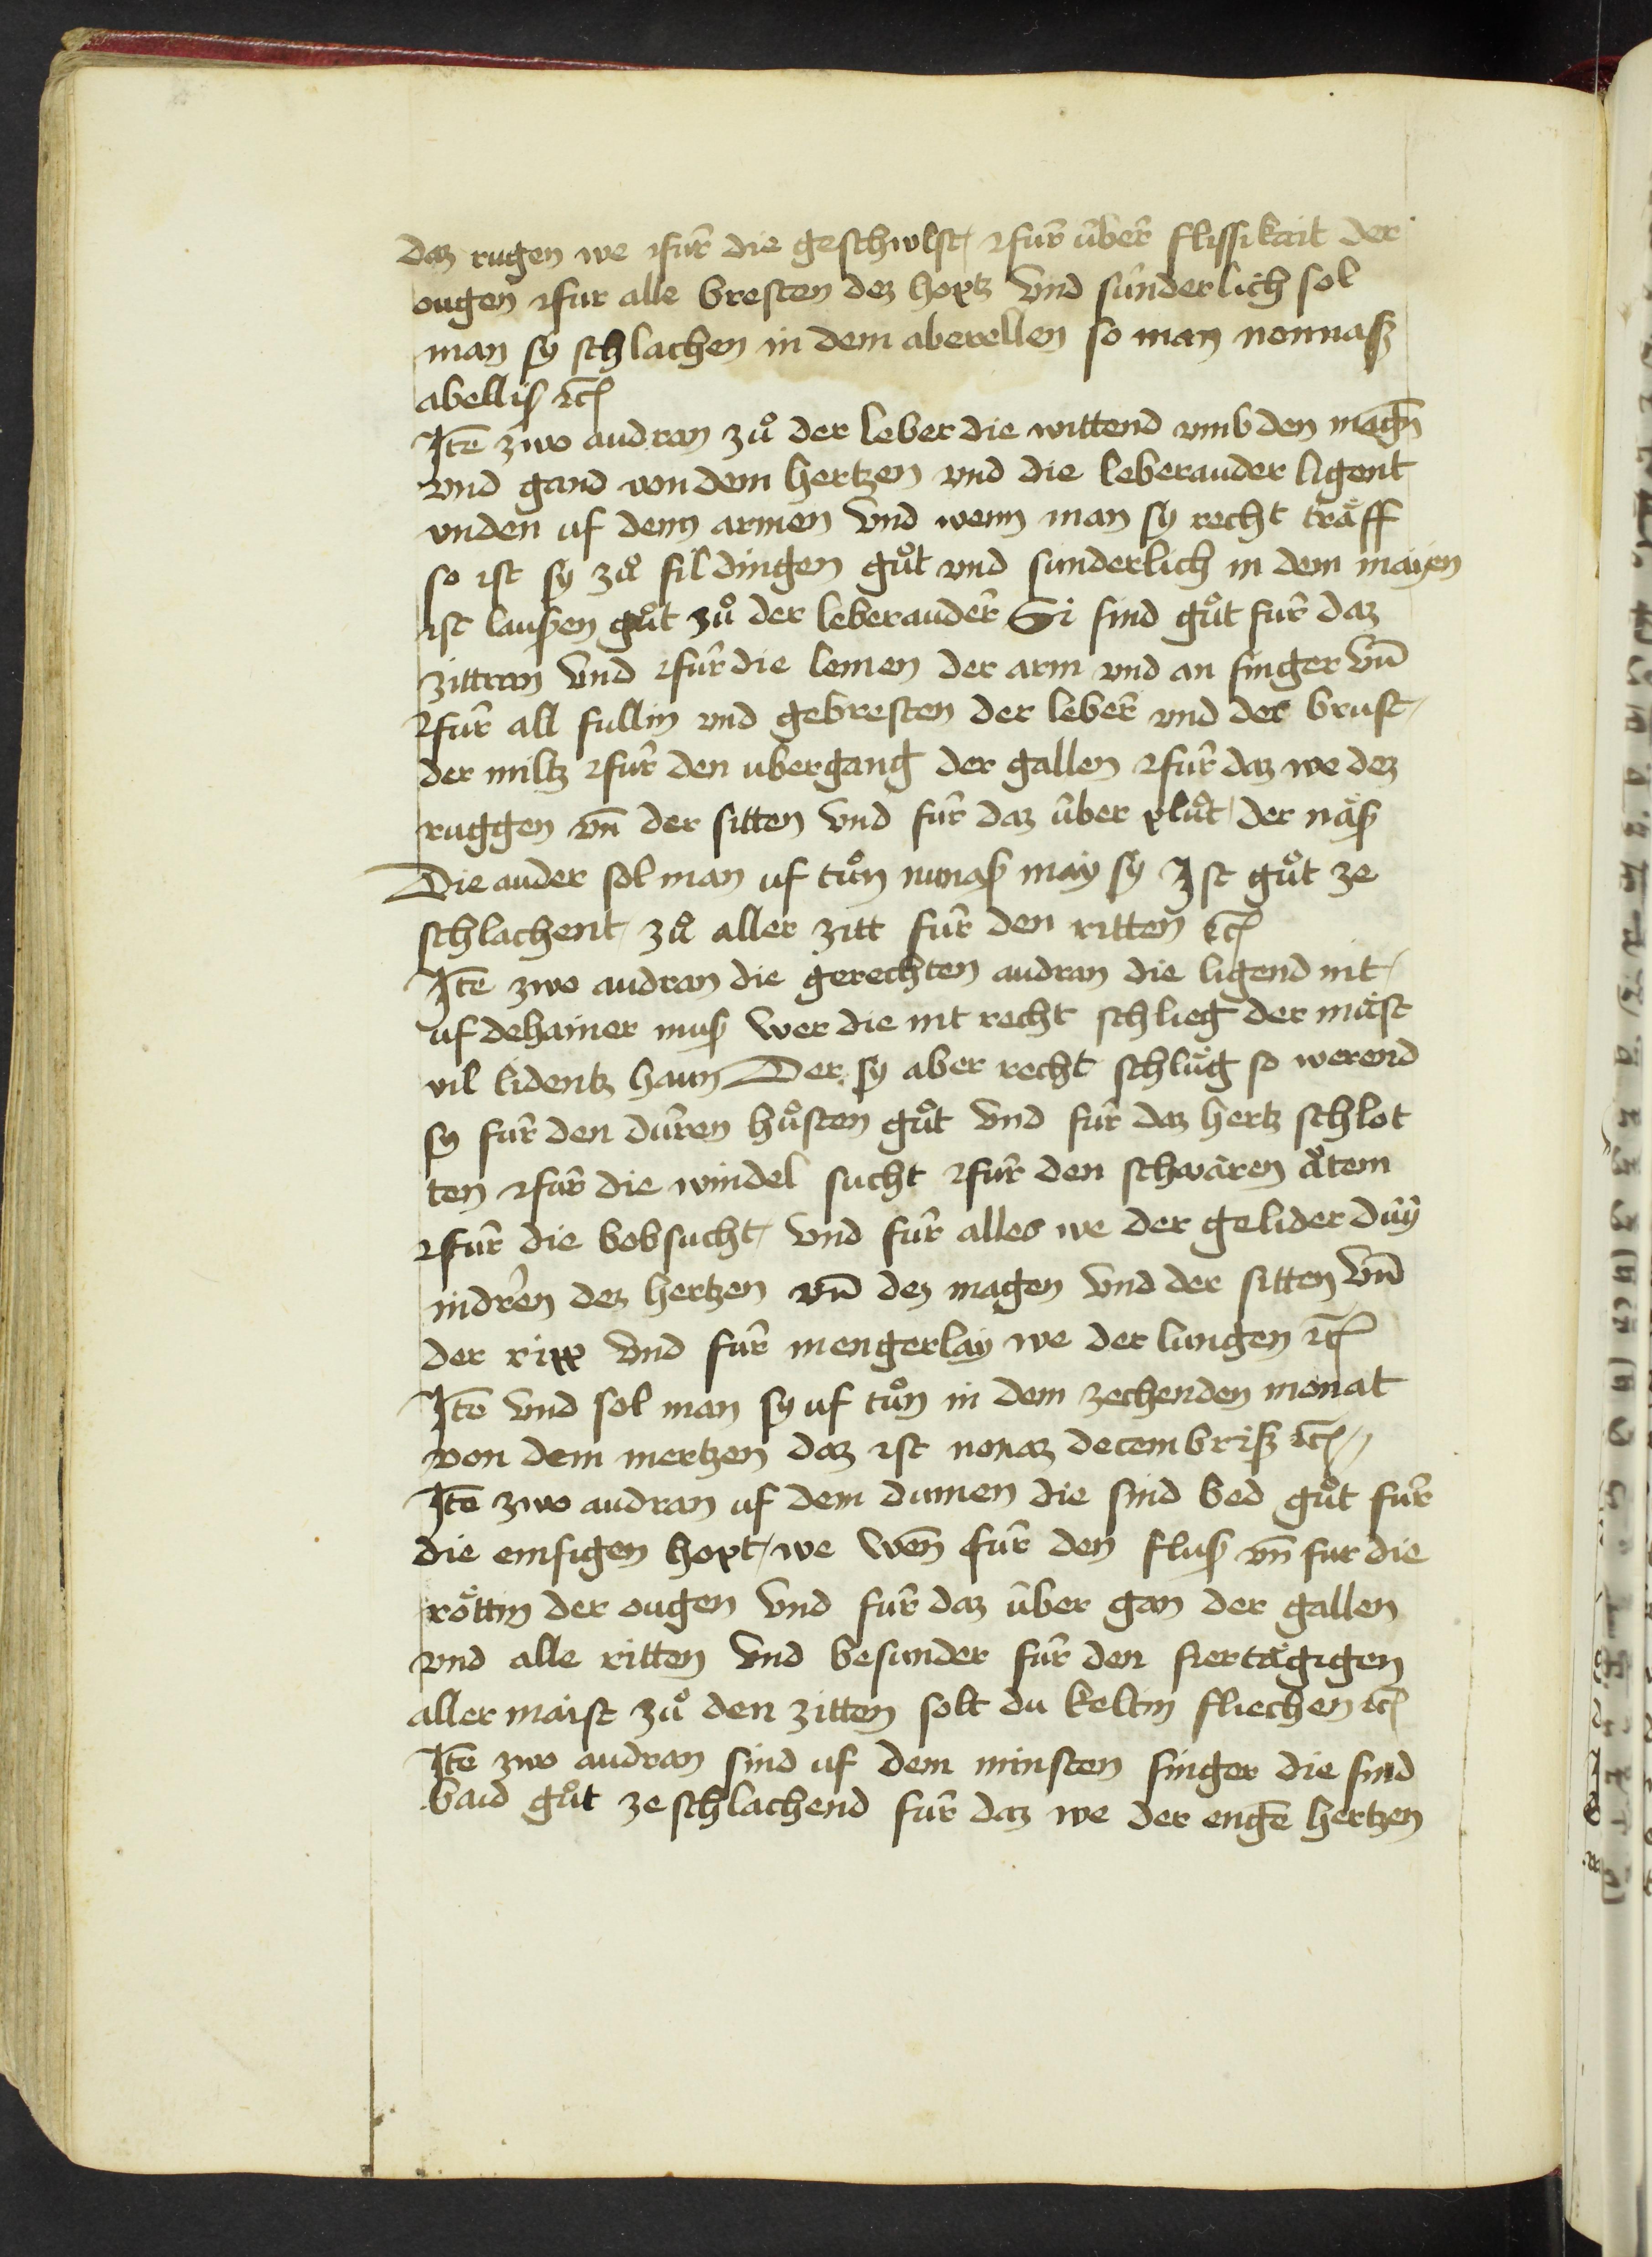 daz rugen we ⁊ fúr die geschwlst / ⁊ fúr úber flissikait der
ougen ⁊ fur alle bresten dez hoptz Vnd súnderlich sol
man sy schlachen in dem aberellen so man nonnasz
abellis ⁊c̄
Itē zwo audran zů der leber die wittend vmb den magn̄
vnd gand von dem hertzen vnd die leberauder ligent
vnden uf dem armen Vnd wenn man sy recht träff
so ist sy zů fil dingen gůt vnd sunderlich in dem maijen
ist laußen gůt zů der leberauder Si sind gůt fúr daz
zittran Vnd ⁊ fúr die lemen der arm vnd an finger vn̄
⁊ fúr all fullin vnd gebresten der leber vnd der brust /
der miltz ⁊ fúr den ubergang der gallen ⁊ fúr daz we dez
ruggen vn̄ der sitten Vnd fúr daz úber plůt / der näß
Die auder sol man uf tůn nunaß maÿ sy Ist gůt ze
schlachent / zů aller zitt fúr den ritten ⁊c̄
Itē zwo audran die gerechten audran die ligend nit /
uf dehainer muß Wer die nit recht schlieg der müst
vil lidentz haun Der sy aber recht schlüg so werend
sy fúr den dúren hůsten gůt Vnd fúr daz hertz schlot
ten ⁊ fúr die windel sucht ⁊ fúr den schwären åtem
⁊ fúr die bobsucht / Vnd fúr alles we der gelider dúÿ
indren dez hertzen vn̄ dez magen Vnd der sitten vn̄
der ripp Vnd fúr mengerlaÿ we der lungen ⁊c̄
Itē Vnd sol man sy uf tůn in dem zechenden monat
von dem mertzen daz ist nonaz decembrisz ⁊c̄ //
Itē zwo audran uf dem dumen die sind bed gůt fúr
die emsigen hopt / we Wen̄ fúr den fluß vn̄ fur die
röttin der ougen Vnd fúr daz úber gan der gallen
vnd alle ritten Vnd besunder fúr den fiertägigen
aller maist zů den zitten solt du keltin fliechen ⁊c̄
Itē zwo audran sind uf dem minsten finger die sind
baid gůt ze schlachend fúr daz we der engē hertzen